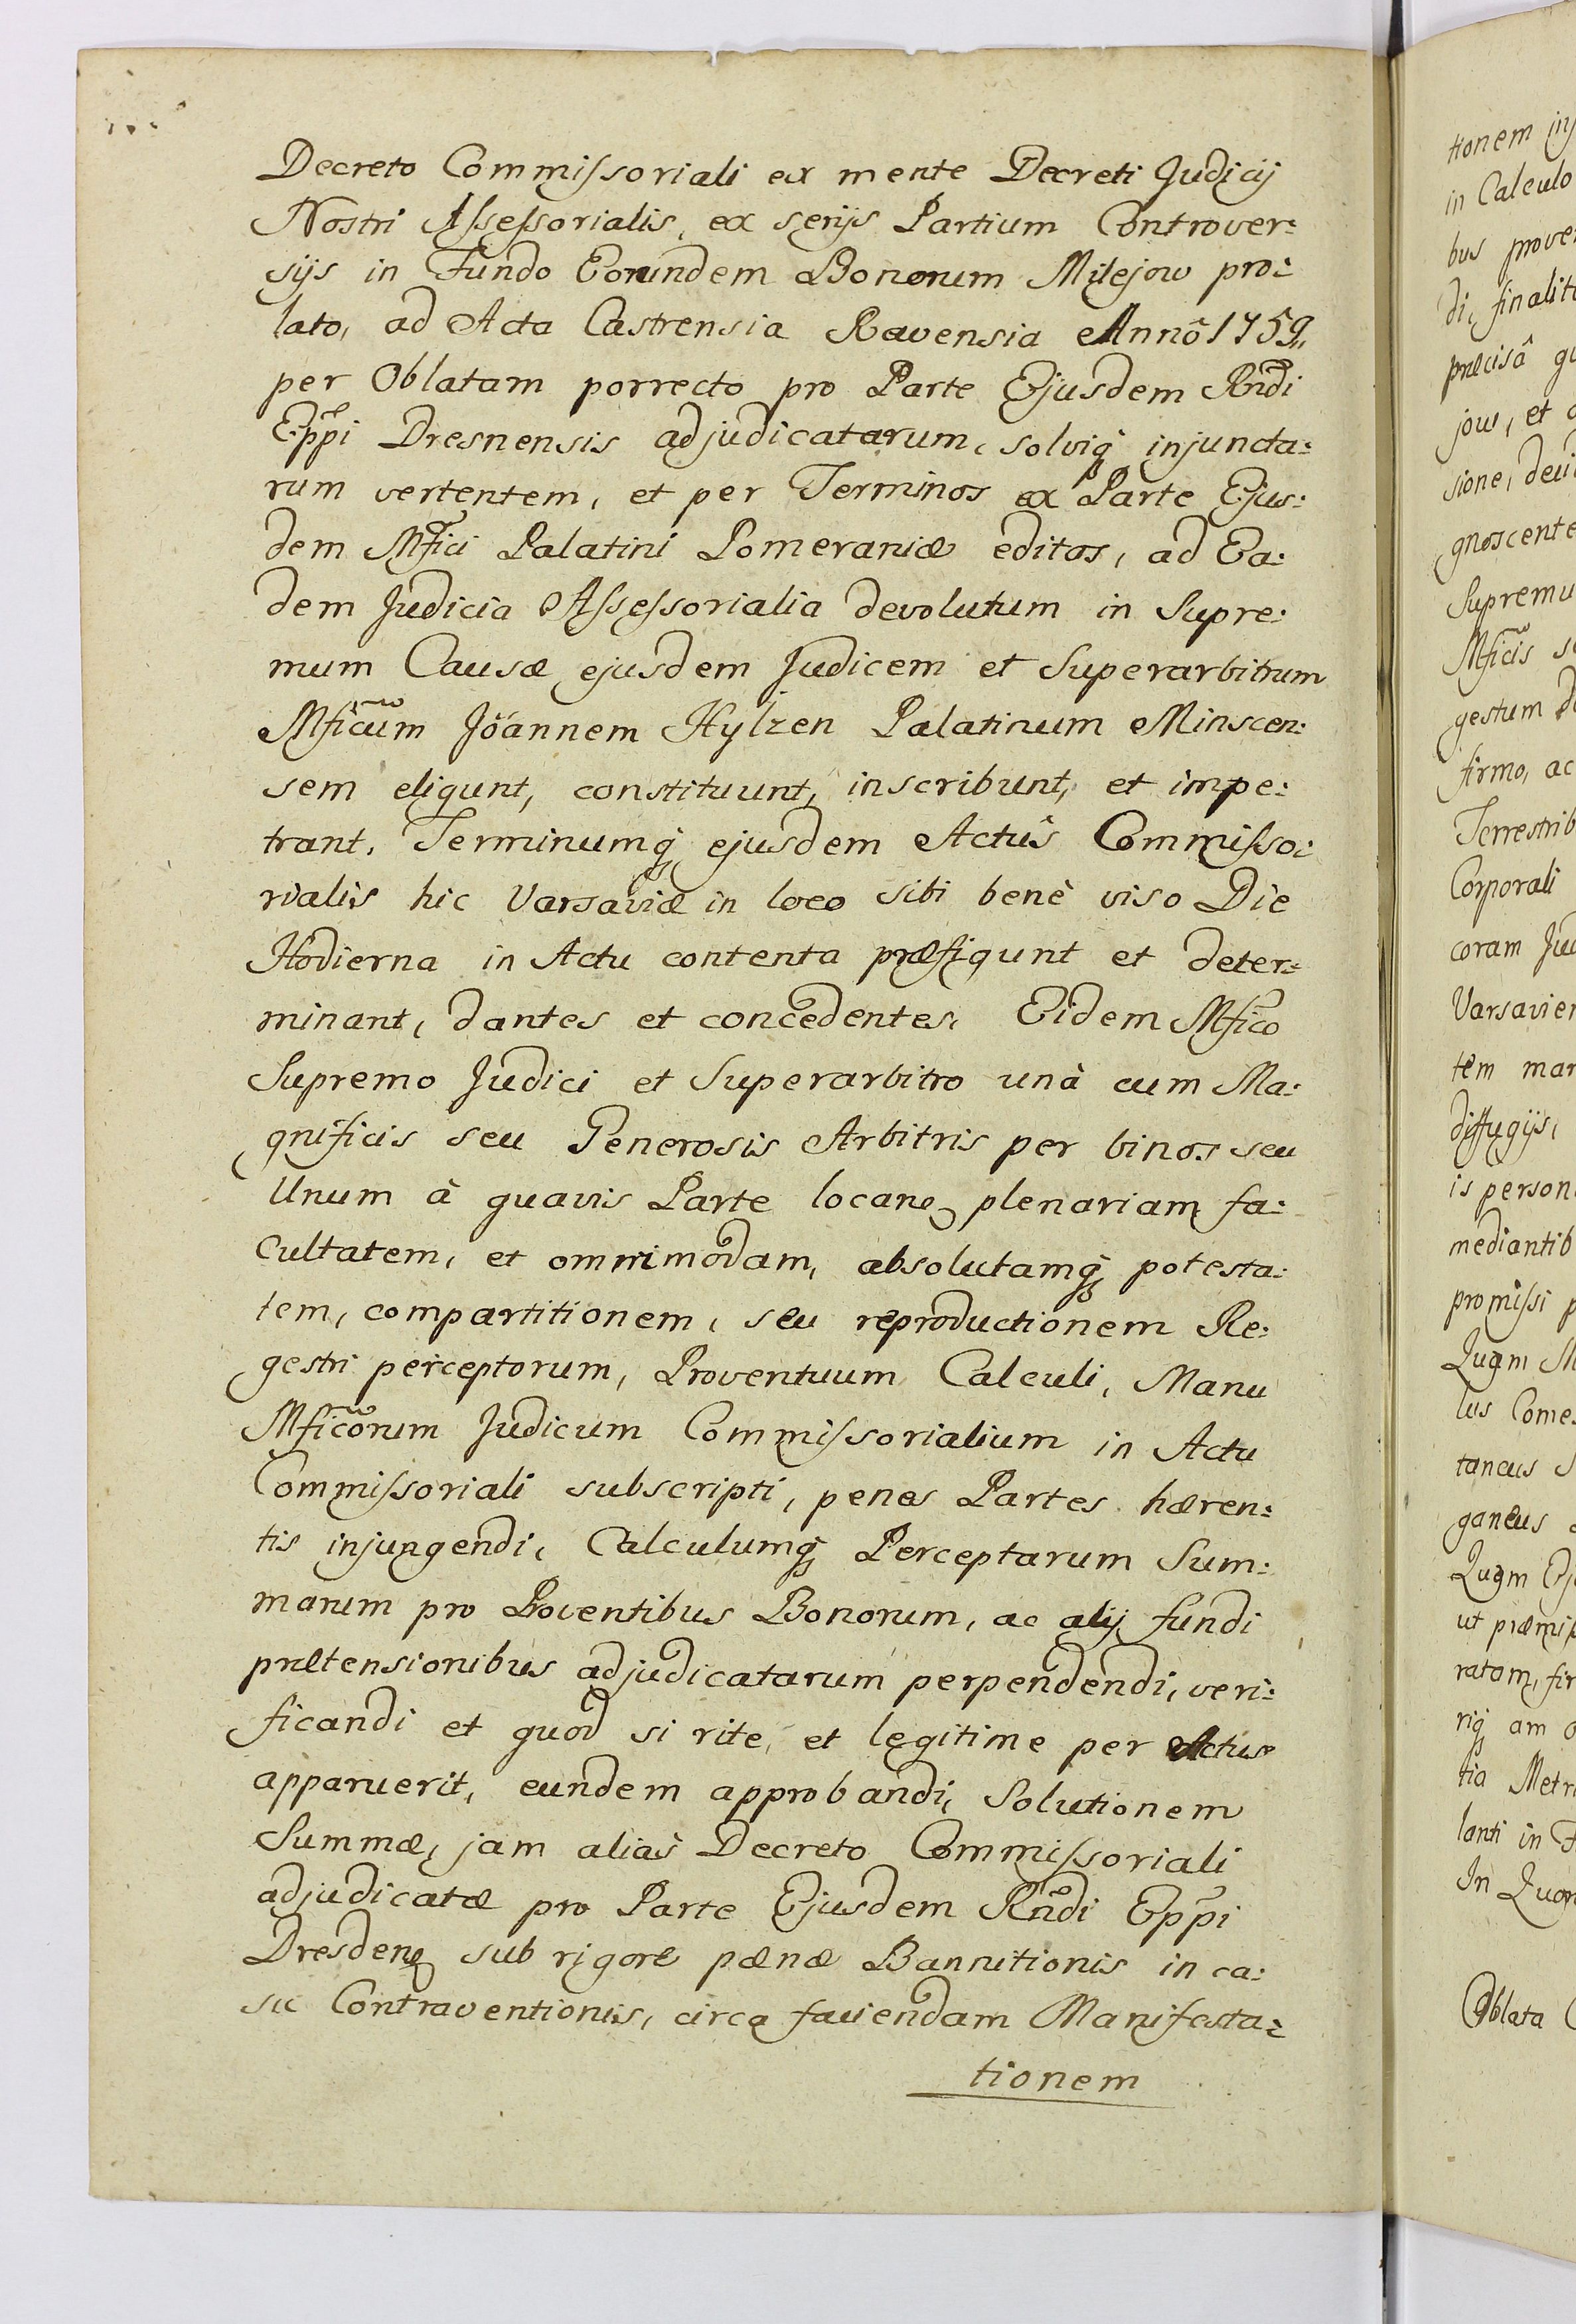 Decreto Commissoriali ex mente Decreti Judicij
Nostri Assessorialis, ex serijs Partium Controver:
sijs in Fundo Eorundem Bonorum Milejow pro:
lato, ad Acta Castrensia Ravensia Annô 1759.
per Oblatam porrecto pro Parte Ejusdem Rñdi
Eppi Dresnensis adjudicatarum, solviq3 injuncta:
rum vertentem, et per Terminos ex Parte Ejus:
dem Mfici Palatini Pomeraniæ editos, ad Ea:
dem Judicia Assessorialia devolutum in Supre:
mum Causæ ejusdem Judicem et Superarbitrum
Mficum Jöannem Hylzen Palatinum Minscen:
sem eligunt, constituunt, inscribunt, et impe:
trant, Terminumq3 ejusdem Actûs Commisso:
rialis hic Varsaviæ in loco sibi benè viso Die
Hodierna in Actu contenta præfigunt et deter:
minant, dantes et concedentes, Eidem Mfico
Supremo Judici et Superarbitro unà cum Ma:
gnificis seu Generosis Arbitris per binos seu
Unum à quavis Parte locan. plenariam fa:
cultatem, et omnimodam, absolutamq3 potesta:
tem, compartitionem, seu reproductionem Re:
gestri perceptorum, Proventuum Calculi, Manu
Mficorum Judicum Commissorialium in Actu
Commissoriali subscripti, penes Partes hæren:
tis injungendi, Calculumq3 Perceptarum Sum:
marum pro Proventibus Bonorum, ac alij fundi
prætensionibus adjudicatarum perpendendi, veri:
ficandi et quod si rite, et legitime per Actus
apparuerit, eundem approbandi, Solutionem
Summæ, jam aliàs Decreto Commissoriali
adjudicatæ pro Parte Ejusdem Rñdi Eppi
Dresden. sub rigore pænæ Bannitionis in ca:
su Contraventionis, circa faciendam Manifesta:
tionem
tionem
in Calculo
bus
di,
præcisâ
jow, et
sione,
Supremu
Mficis
gestum
firmo, ac
Terrestrib
Corporali
coram
Varsavien
tem
diffugijs,
is person
mediantib
promissi
Quam
lus Comes
taneus
ganeus
Quam
ut præmis
ratam,
riq3 am
tia Metri
lanti in
In Quor
Oblata